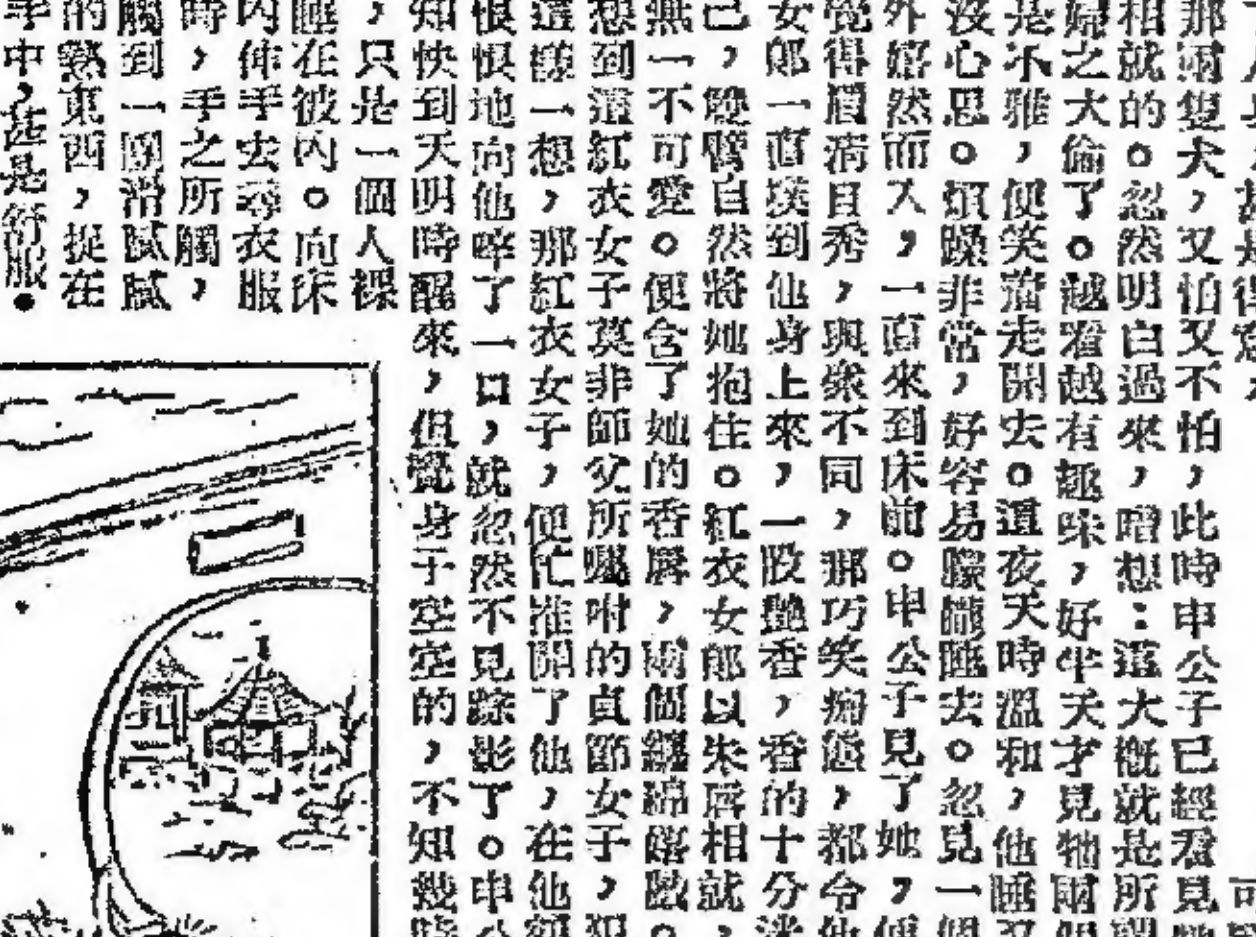 那兩隻犬，又怕又不怕，此時申公子已經看見
相就的。忽然明白過來，暗想：這大概就是所謂
婦之大倫了。越看越有趣味，好半天才見牠兩
是不雅，便笑着走開去。這夜天時溫和，他睡
沒心思。煩躁非常，好容易朦朧睡去。忽見一個
外嬉然而入，一直來到床前。申公子見了她，便
覺得眉清目秀，與衆不同，那巧笑痴態，都令他
女郎一直璞到他身上來，一股艷香，香的十分迷
己，雙臂自然將她抱住。紅衣女郎以朱唇相就，
無一不可愛。便含了她的香唇，兩個纏綿
想到這紅衣女子莫非師父所囑咐的貞節女子，犯
這樣一想，那紅衣女子，便忙推開了他，在他
恨恨地向他啐了一口，就忽然不見踪影了。申公
知快到天明時醒來，但覺身子空空的，不知幾時
，只是一個人裸
睡在被內。向床
內伸手去尋衣服
時，手之所觸，
觸到一團滑膩膩
的熱東西，捉在
手中，甚是舒服。